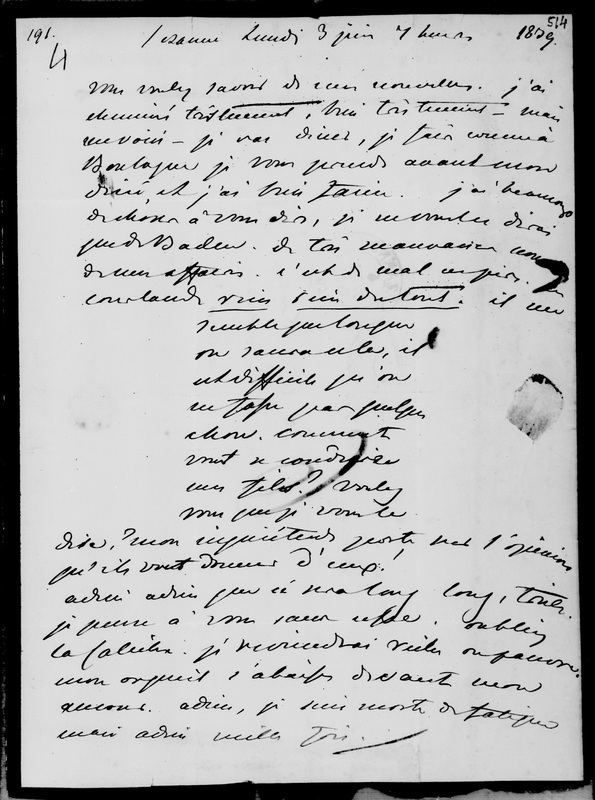 191. Lundi 3 juin 7 heures 1839. 514
4
vous voulez savoir de mes nouvelles. j'ai
cheminé tristement, bien tristement - mais
me voici - je vais diner, je
Boulogne je vous avant mon
diné, et j'ai bien faim. j'ai beaucoup
de choses à vous dire, je ne vous dirai
que de Baden. de très mauvaises nouvelles
de mes affaires. c'est de mal en pire. en
courlande rien rien du tout. il me
semble que lorsque
on saura cela, il
est difficile qu'on
ne fasse pas quelque
chose. comment
vont se conduire
mes fils? voulez
vous que je vous le
dise, mon inquiétude porte sur l'opinion
qu'ils vont donner d'eux!
adieu adieu que ce sera long long, triste.
je pense à vous sans cesse. oubliez
la . je reviendrai riche ou pauvre.
mon orgueil s'abaisse devant mon
amour. adieu, je suis morte de fatigue
mais adieu mille fois.